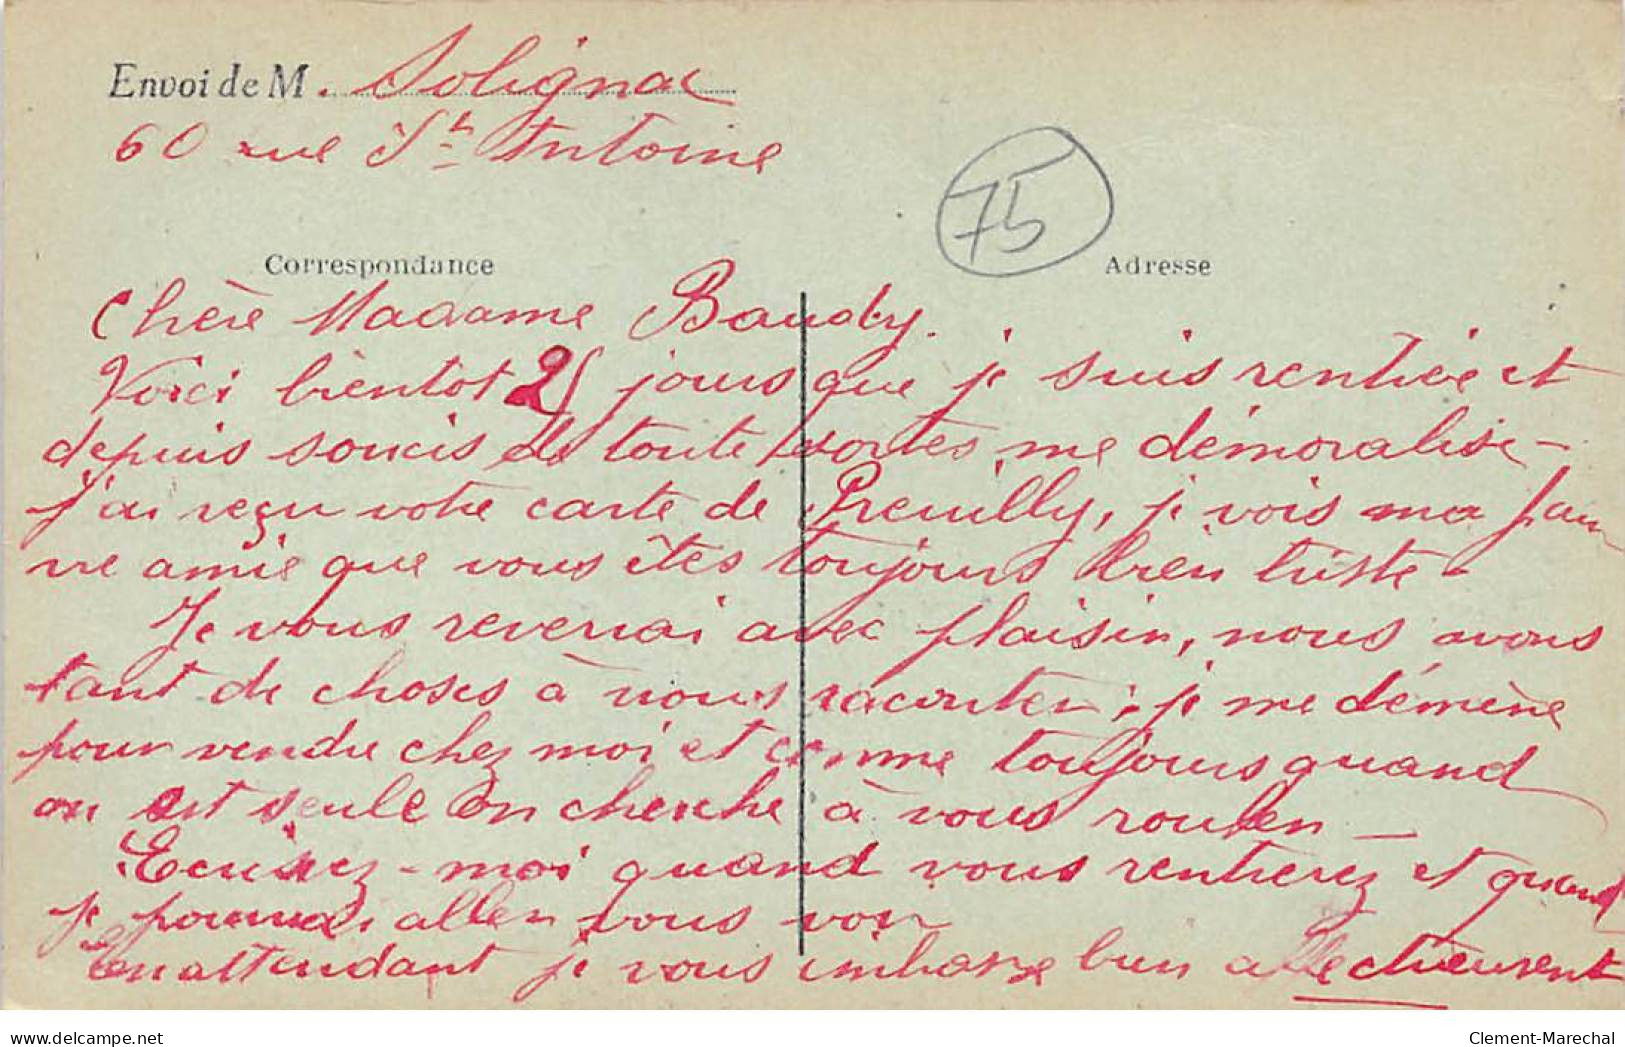 Envoi de M. Solignac
60 rue St Antoine
75
Correspondance
Adresse
Chère Madame Baudry.
Voici bientot 25 jours que je suis rentrée et
depuis soucis de toute sortes me démoralise -
J'ai reçu votre carte de Preuilly, je vois ma pau
vre amie que vous êtes toujours bien triste -
Je vous reverrai avec plaisir, nous avons
tant de choses à nous raconter; je me démène
pour vendre chez moi et comme toujours quand
on est seule on cherche à vous rouler -
Ecrivez-moi quand vous rentrerez et quand
je pourrai aller vous voir
En attendant je vous embrasse bien affectueusement
delcampe.net
Clement-Marechal